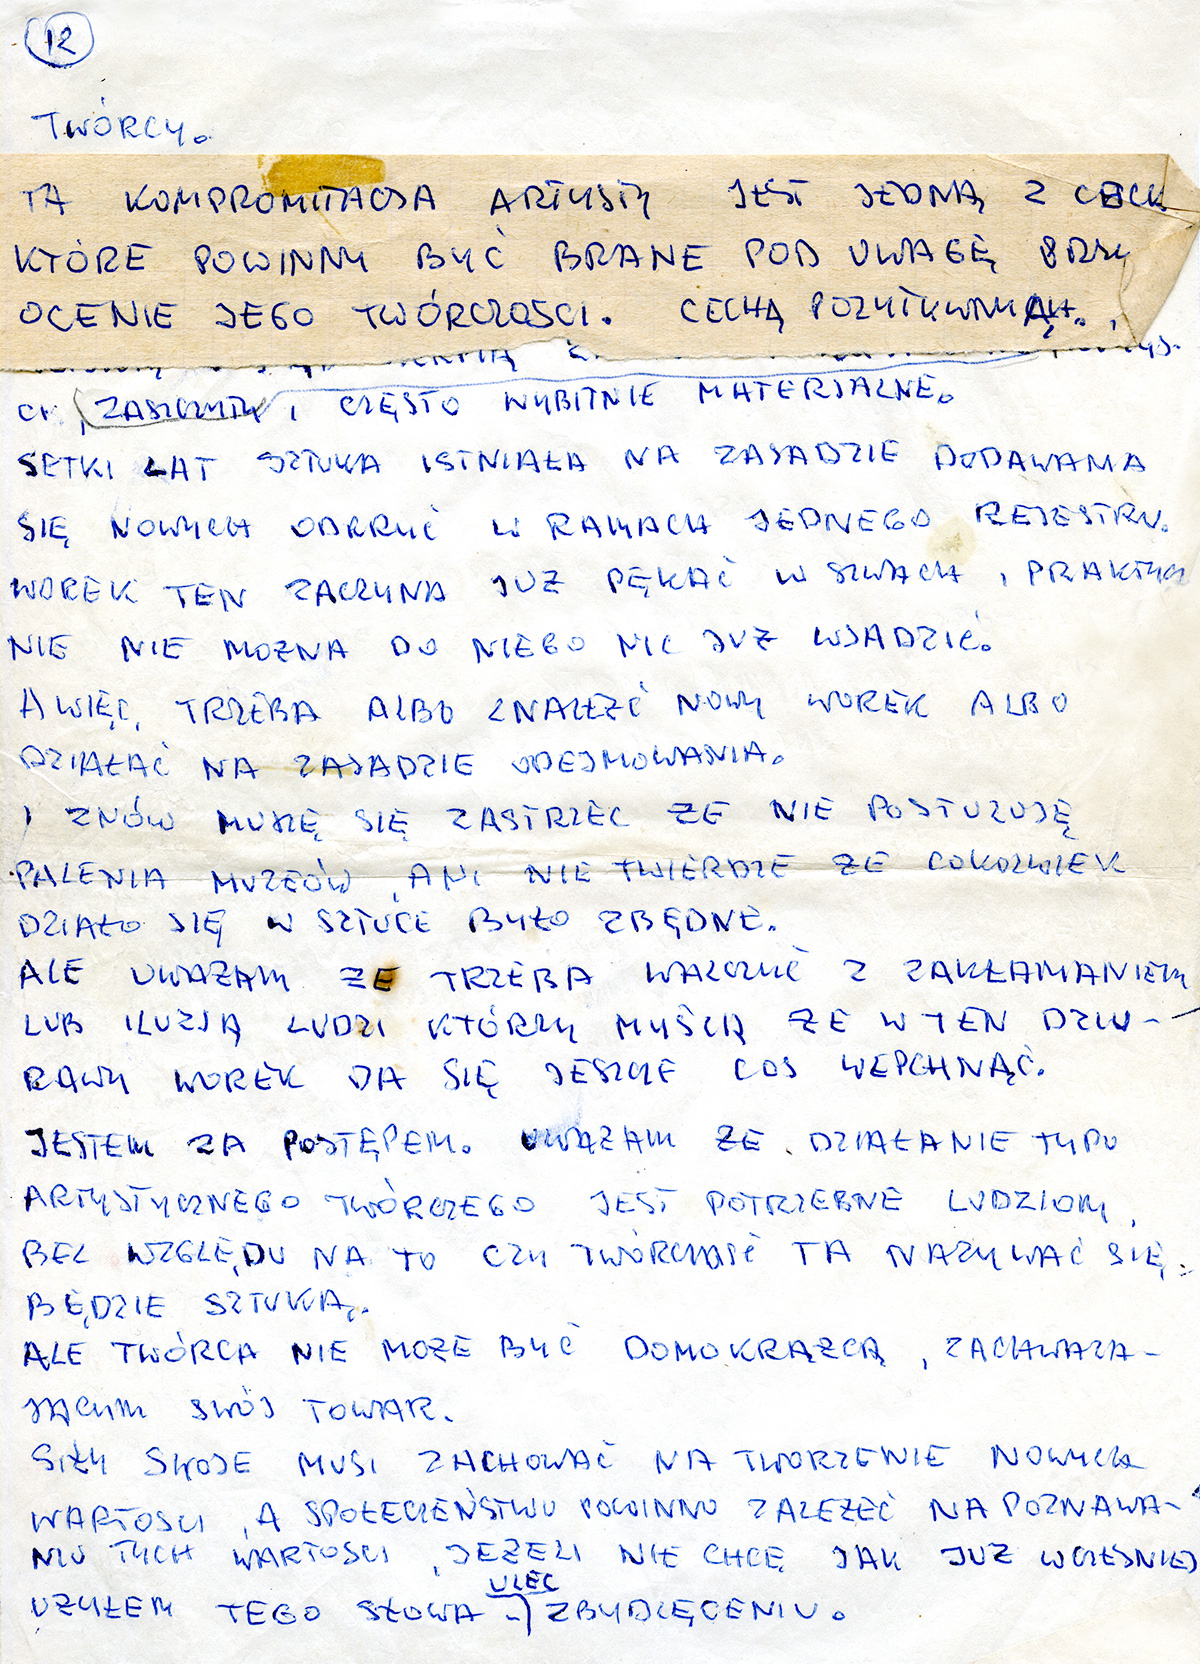 12
TWÓRCY.
TA KOMPROMITACJA ARTYSTY JEST JEDNĄ Z CECH
KTÓRE POWINNY BYĆ BRANE POD UWAGĘ PRZY
OCENIE JEGO TWÓRCZOSCI. CECHĄ POZYTYWNĄ.
ZASZCZYTY I CZĘSTO WYBITNIE MATERJALNE.
SETKI LAT SZTUKA ISTNIAŁA NA ZASADZIE DODAWANIA
SIĘ NOWYCH ODKRYĆ W RAMACH JEDNEGO REJESTRU.
WOREK TEN ZACZYNA JUZ PĘKAĆ W SZWACH, PRAKTYCZ
NIE NIE MOZNA DO NIEGO NIC JUZ WSADZIĆ.
A WIĘC, TRZEBA ALBO ZNALEŹĆ NOWY WOREK ALBO
DZIAŁAĆ NA ZASADZIE ODEJMOWANIA.
I ZNÓW MUSZĘ SIĘ ZASTRZEC ZE NIE POSTULUJĘ
PALENIA MUZEÓW, ANI NIE TWIERDZE ZE COKOLWIEK
DZIAŁO SIĘ W SZTUCE BYŁO ZBĘDNE.
ALE UWAZAM ZE TRZEBA WALCZYĆ Z ZAKŁAMANIEM
LUB ILUZJĄ LUDZI KTÓRZY MYŚLĄ ZE W TEN DZIU-
RAWY WOREK DA SIĘ JESZCZE COS WEPCHNĄĆ.
JESTEM ZA POSTĘPEM. UWAZAM ZE DZIAŁANIE TYPU
ARTYSTYCZNEGO TWÓRCZEGO JEST POTRZEBNE LUDZIOM,
BEZ WZGLĘDU NA TO CZY TWÓRCZOŚĆ TA NAZYWAĆ SIĘ
BĘDZIE SZTUKĄ.
ALE TWÓRCA NIE MOZE BYĆ DOMOKRĄZCĄ, ZACHWALA-
JĄCYM SWÓJ TOWAR.
SIŁY SWOJE MUSI ZACHOWAĆ NA TWORZENIE NOWYCH
WARTOSCI, A SPOŁECZEŃSTWU POWINNO ZALEZEĆ NA POZNAWA-
NIU TYCH WARTOSCI, JEZELI NIE CHCĘ JAK JUZ WCZEŚNIEJ
UZYŁEM TEGO SŁOWA ULEC ZBYDLĘCENIU.